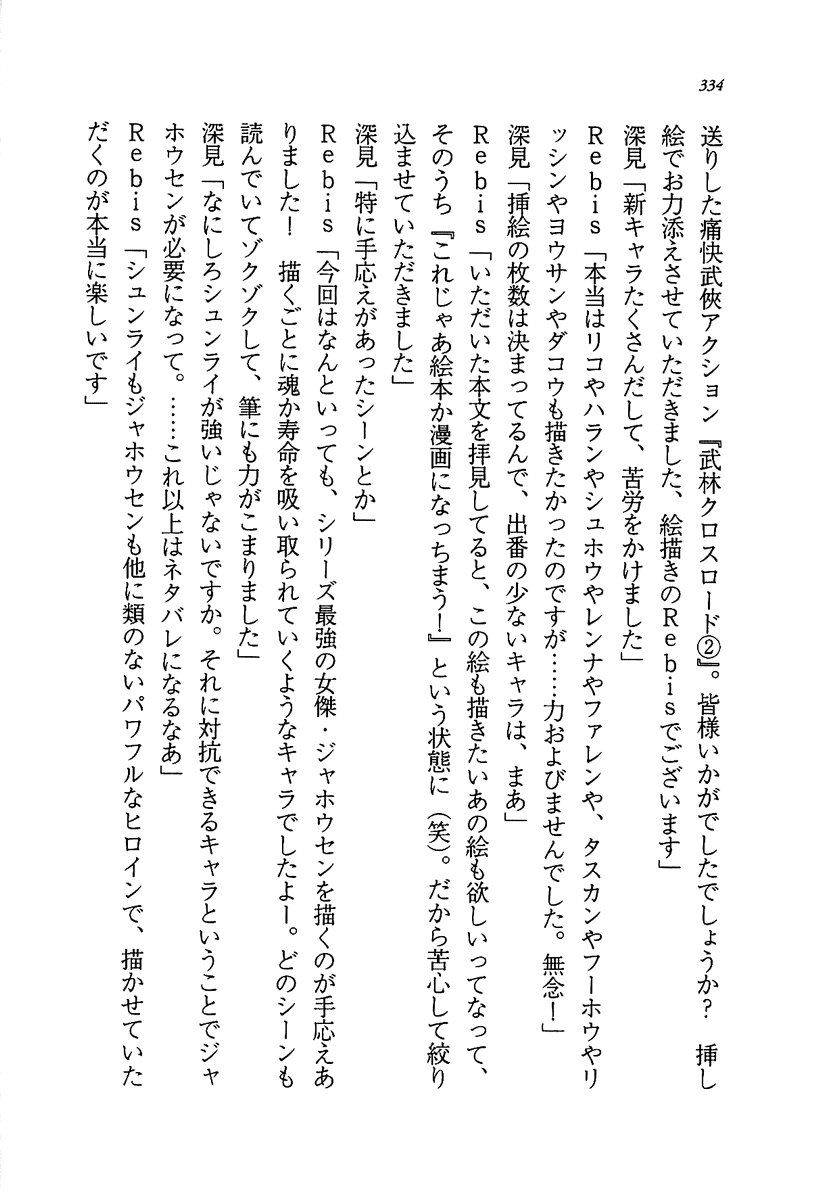 334
送りした痛快武俠アクション『武林クロスロード②』。皆様いかがでしたでしょうか？　挿し
絵でお力添えさせていただきました、絵描きのＲｅｂｉｓでございます」
深見「新キャラたくさんだして、苦労をかけました」
Ｒｅｂｉｓ「本当はリコやハランやシュホウやレンナやファレンや、タスカンやフーホウやリ
ッシンやヨウサンやダコウも描きたかったのですが……力およびませんでした。無念！」
深見「挿絵の枚数は決まってるんで、出番の少ないキャラは、まあ」
Ｒｅｂｉｓ「いただいた本文を拝見してると、この絵も描きたいあの絵も欲しいってなって、
そのうち『これじゃあ絵本か漫画になっちまう！』という状態に（笑）。だから苦心して絞り
込ませていただきました」
深見「特に手応えがあったシーンとか」
Ｒｅｂｉｓ「今回はなんといっても、シリーズ最強の女傑・ジャホウセンを描くのが手応えあ
りました！　描くごとに魂か寿命を吸い取られていくようなキャラでしたよー。どのシーンも
読んでいてゾクゾクして、筆にも力がこまりました」
深見「なにしろシュンライが強いじゃないですか。それに対抗できるキャラということでジャ
ホウセンが必要になって。……これ以上はネタバレになるなあ」
Ｒｅｂｉｓ「シュンライもジャホウセンも他に類のないパワフルなヒロインで、描かせていた
だくのが本当に楽しいです」